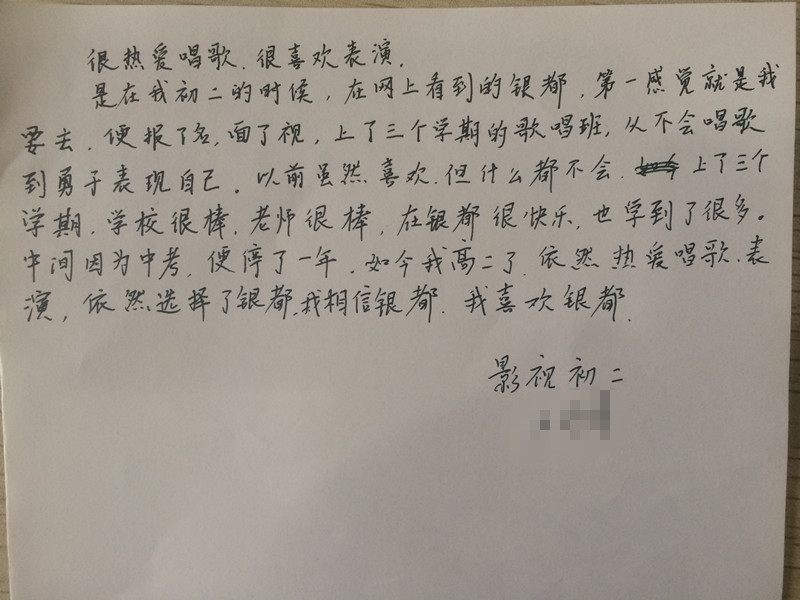 很热爱唱歌.很喜欢表演.
是在我初二的时候，在网上看到的银都，第一感觉就是我
要去，便报了名，面了视，上了三个学期的歌唱班，从不会唱歌
到勇于表现自己。以前虽然喜欢.但什么都不会.上了三个
学期，学校很棒，老师很棒，在银都很快乐，也学到了很多。
中间因为中考，便停了一年，如今我高二了，依然热爱唱歌、表
演，依然选择了银都，我相信银都.我喜欢银都.
影视初二